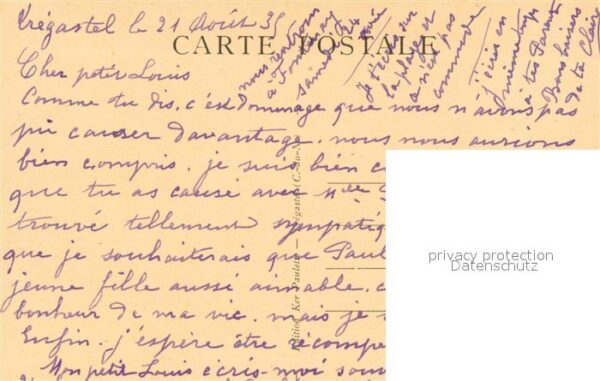 Trégastel le 21 Août 35
CARTE POSTALE
Cher petit Louis
Comme tu dis, c'est dommage que nous n'avons pas
pu causer davantage. nous nous aurions
bien compris. je suis bien c
que tu as causé avec Melle
trouvé tellement sympatiq
que je souhaiterais que Paul
jeune fille aussi aimable, c
bonheur de ma vie. mais je
Enfin. j'espère être récompe
Mon petit Louis écris-moi souv
nous rentrons
à
samedi 24
Je t'écris sur
la plage et
c'est pas
commode
j'écris en
même temps
à tes Parents
Bons baisers
de ta Claire
Edition Ker Paulette — Trégastel (C.-du-
privacy protection
Datenschutz